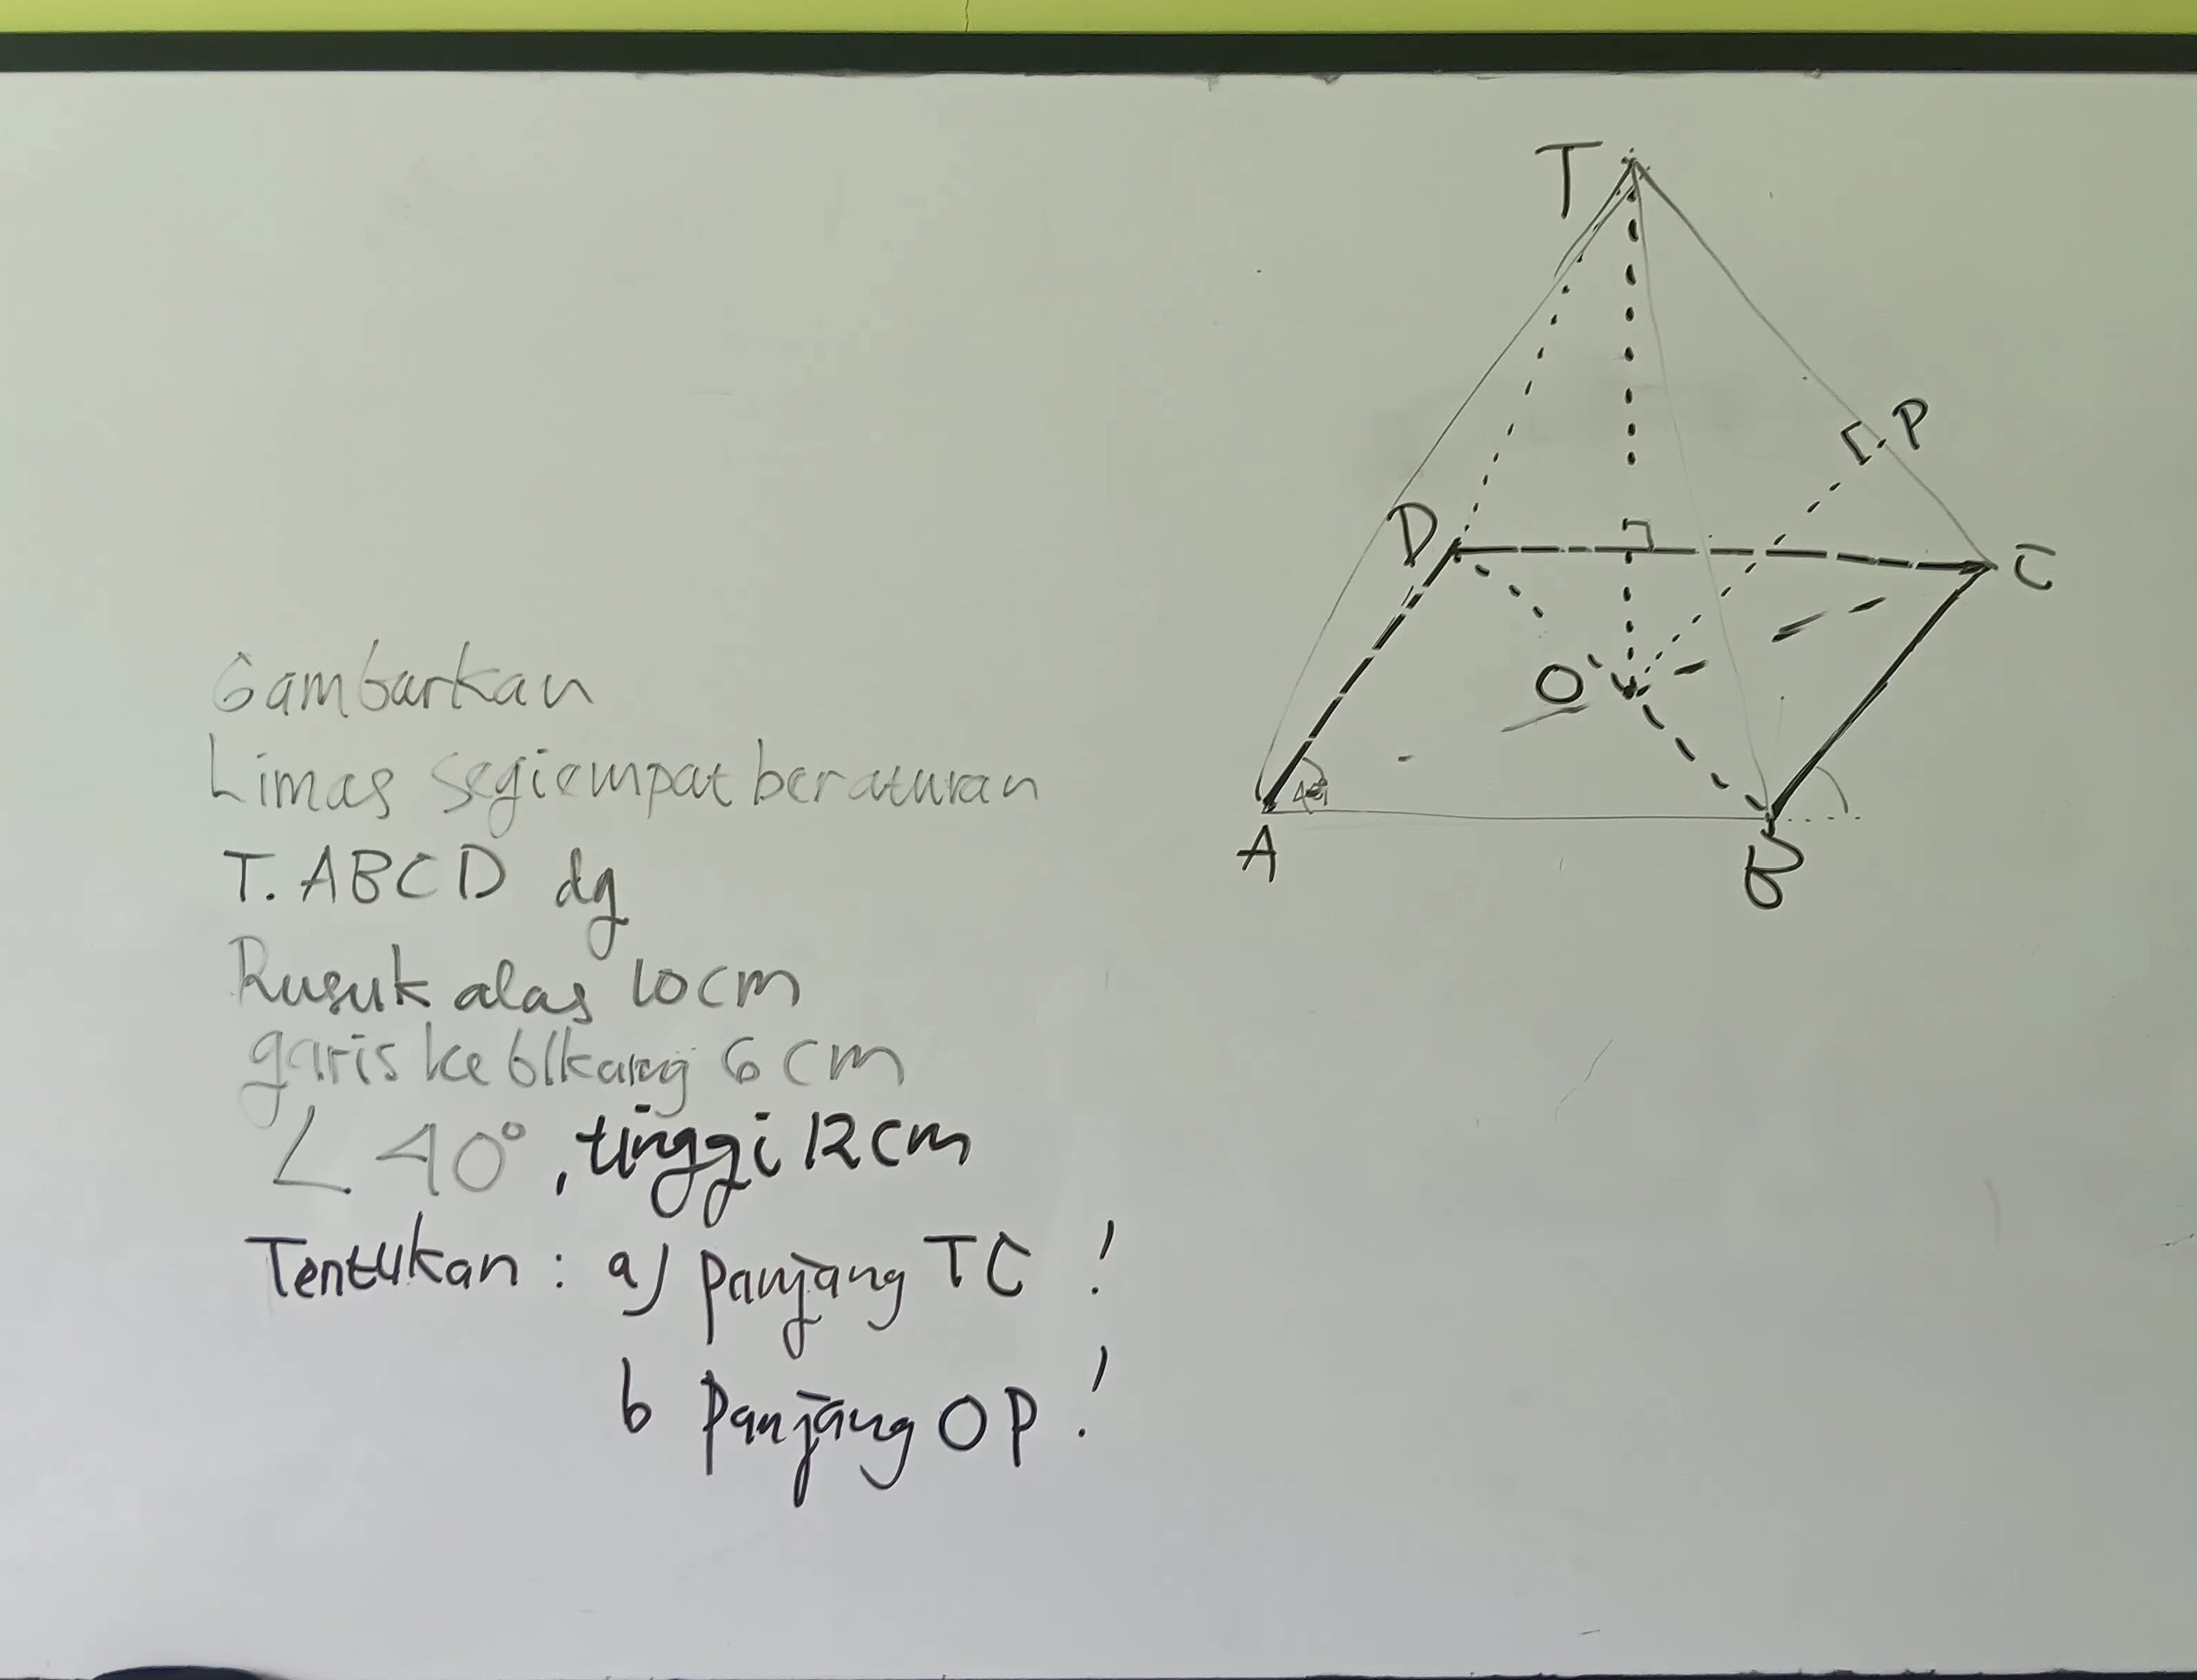 Gambarkan
Limas segiempat beraturan
T. ABCD dg
Rusuk alas 10 cm
garis ke blkang 6 cm
∠ 40°, tinggi 12 cm
Tentukan : a) panjang TC !
b panjang OP !
T
P
D
C
O
A
B